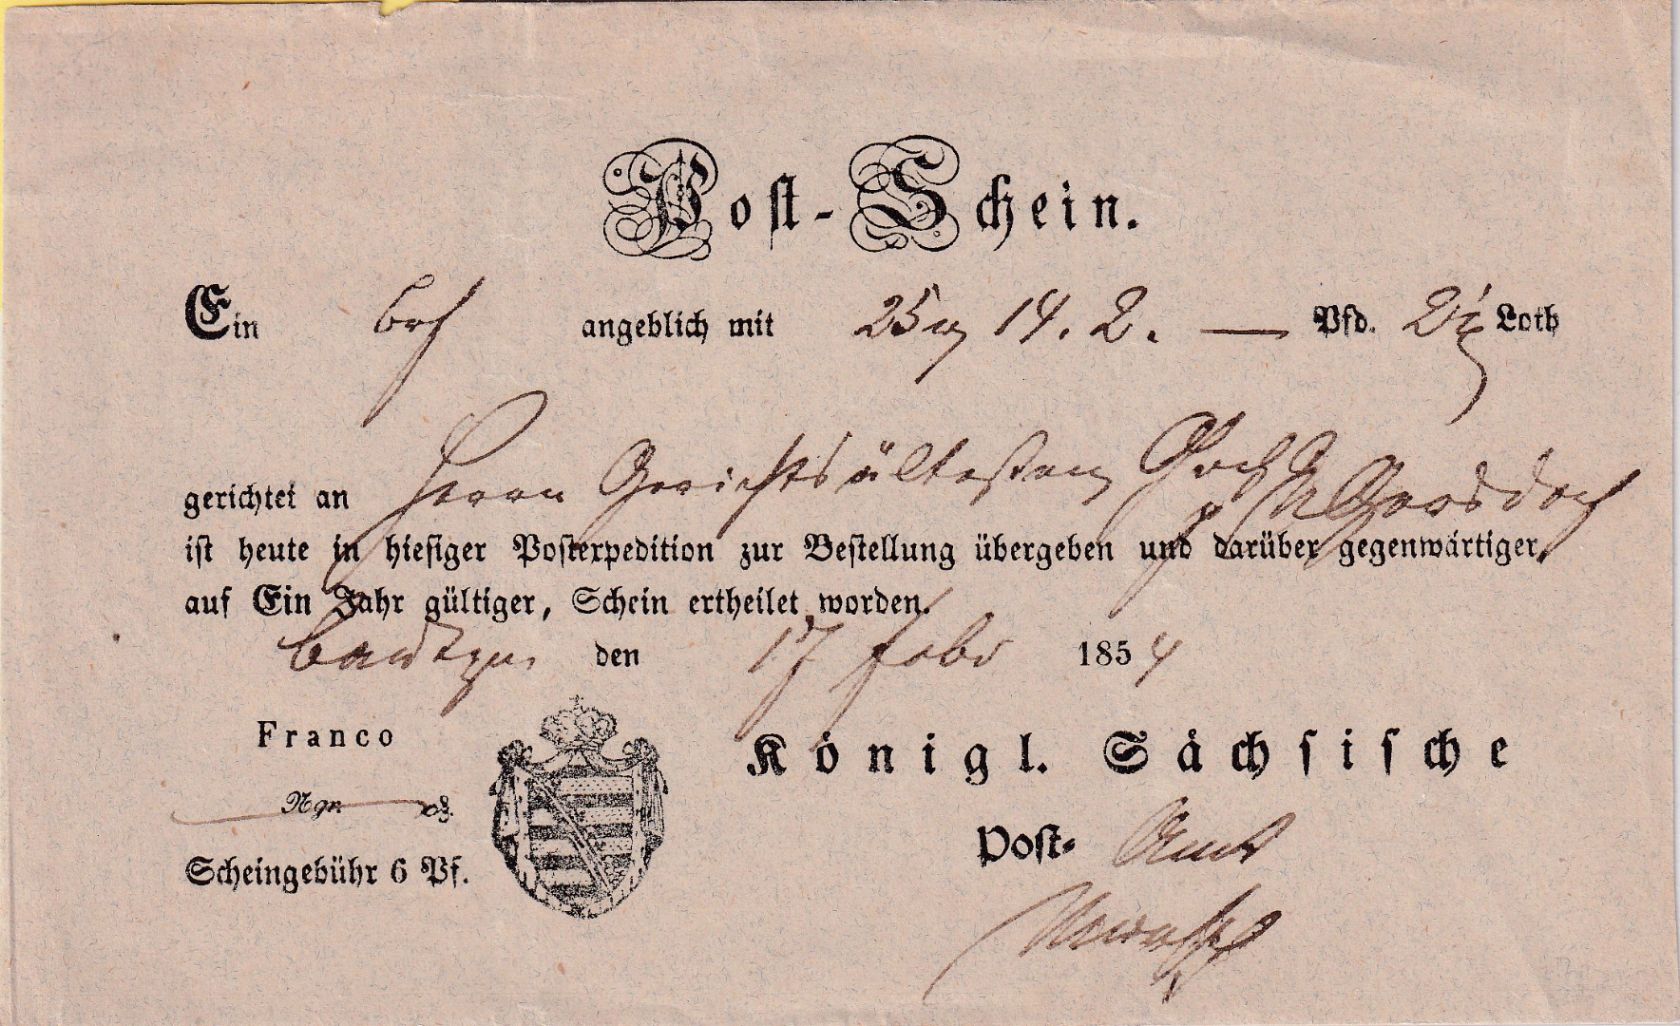 Post-Schein.
Ein Brf angeblich mit 25 14. 2. — Pfd. 2½ Loth
gerichtet an Herrn Gerichtsältesten
ist heute in hiesiger Postexpedition zur Bestellung übergeben und darüber gegenwärtiger,
auf Ein Jahr gültiger, Schein ertheilet worden.
Budissin den 17 Febr 1854
Franco
Königl. Sächsische
Ngr. — ₰.
Post-Amt
Scheingebühr 6 Pf.